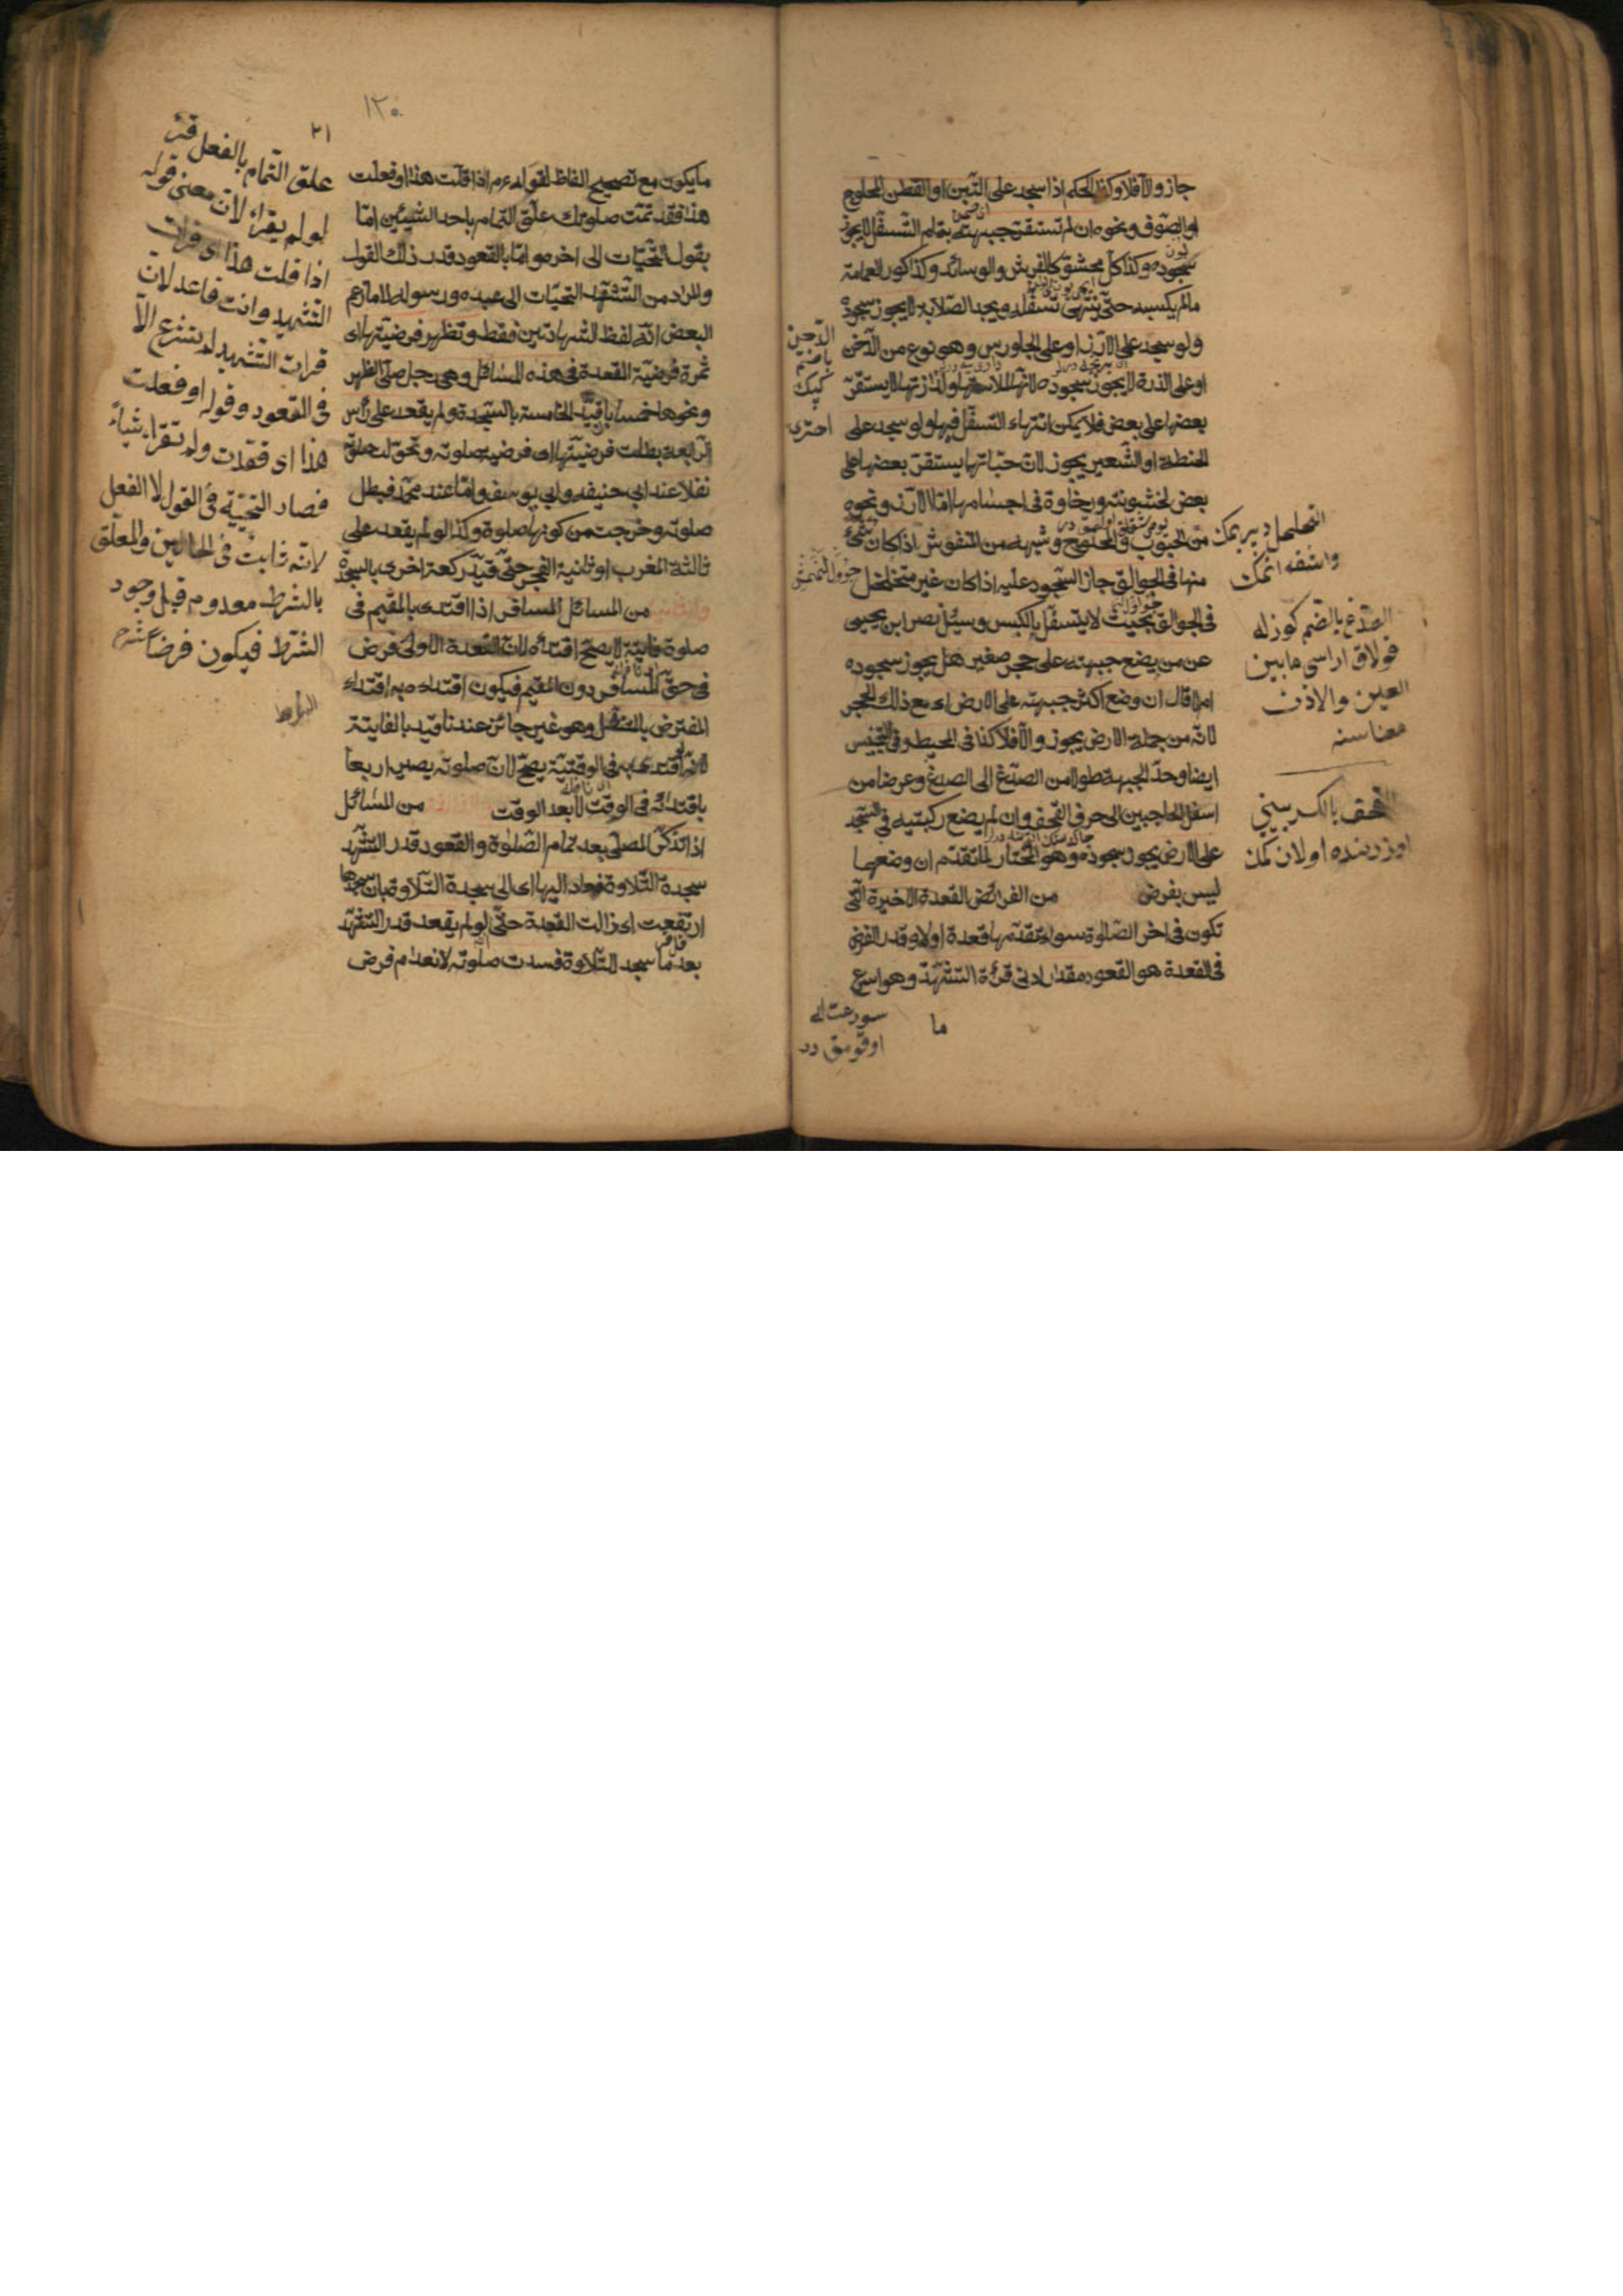 جاز والا فلا وكذا الحكم اذا سجد على التبن او القطن المحلوج
او الصوف ونحوه ان لم تستقر جبهته بتمام التسفل لا يجوز
سجوده وكذا كل محشو كالفرش والوسائد وكذا كور العمامة
مالم يكبسه حتى ينتهى تسفله ويجد الصلابة لا يجوز سجوده
ولو سجد على الارز او على الجاورس وهو نوع من الدخن
او على الذرة لا يجوز سجوده لانها لملاستها ولزازتها لا يستقر
بعضها على بعض فلا يمكن انتهاء التسفل فيها ولو سجد على
الحنطة او الشعير يجوز لان حباتها يستقر بعضها على
بعض لخشونة ورخاوة فى اجسامها اما الارز ونحوه
من الحبوب والمحلوج وشبهه من المنفوش اذا كان
منها فى الجوالق جاز السجود عليه اذا كان غير متخلخل
فى الجوالق بحيث لا يتسفل بالكبس وسئل نصر ابن يحيى
عن من يضع جبهته على حجر صغير هل يجوز سجوده
ام لا قال ان وضع اكثر جبهته على الارض اى مع ذلك الحجر
لانه من جملة الارض يجوز والا فلا كذا فى المحيط وفى التجنيس
ايضا وحد الجبهة طولا من الصدغ الى الصدغ وعرضا من
اسفل الحاجبين الى حرف القحف وان لم يضع ركبتيه فى السجد
على الارض يجوز سجوده وهو المختار لما تقدم ان وضعهما
ليس بفرض من الفرائض القعدة الاخيرة التى
تكون فى اخر الصلوة سواء تقدمها قعدة اولا وقدر الفرض
فى القعدة هو القعود مقدار ادنى قرأة التشهد وهو اسرع
ما
الدخن
بالضم
واشفه اتمك
الصدغ بالضم كوزله
قولاق اراسى مابين
العين والاذن
معناسنه
القحف بالكسر
اوزرنده اولان كمك
١٢٠
٢١
مايكون مع تصحيح الفاظ لقوله ءم اذا قلت هذا او فعلت
هذا فقد تمت صلوتك علق التمام باحد الشيئين اما
بقول التحيات الى اخره واما بالقعود قدر ذلك القول
والمراد من التشهد التحيات الى عبده ورسوله لا ما زعم
البعض انه لفظ الشهادتين فقط وتظهر فرضيتها اى
ثمرة فرضية القعدة فى هذه المسائل وهى رجل صلى الظهر
ونحوها خمسا بان قيد الخامسة بالسجدة ولم يقعد على رأس
الرابعة بطلت فرضيتها اى فرضية صلوته وتحولت صلوته
نفلا عند ابى حنيفة وابى يوسف واما عند محمد فبطل
صلوته وخرجت من كونها صلوة وكذا لو لم يقعد على
ثالثة المغرب او ثانية الفجر حتى قيد ركعة اخرى بالسجدة
والثانية من المسائل المسافر اذا اقتدى بالمقيم فى
صلوة فايتة لا يصح اقتداؤه لان القعدة الاولى فرض
فى حق المسافر دون المقيم فيكون اقتداءه به اقتداء
المفترض بالمتنفل وهو غير جائز عندنا قيد بالفايتة
لانه لو اقتدى به فى الوقتية يصح لان صلوته يصير اربعا
باقتدائه فى الوقت لا بعد الوقت والثالثة من المسائل
اذا تذكر المصلى بعد تمام الصلوة والقعود قدر التشهد
سجدة التلاوة فعاد اليها اى الى سجدة التلاوة بان سجدها
ارتفعت اى زالت القعدة حتى لو لم يقعد قدر التشهد
بعد ما سجد التلاوة فسدت صلوته لانعدام فرض
علق التمام بالفعل قرأ
او لم يقرأ لان معنى قوله
اذا قلت هذا اى قرات
التشهد وانت قاعد لان
قرات التشهد لم يشرع الا
فى القعود وقوله او فعلت
هذا اى قعدت ولم تقرا شيأ
فصار التخيير فى القول لا الفعل
لانه ثابت فى الحالين والمعلق
بالشرط معدوم قبل وجود
الشرط فيكون فرضا